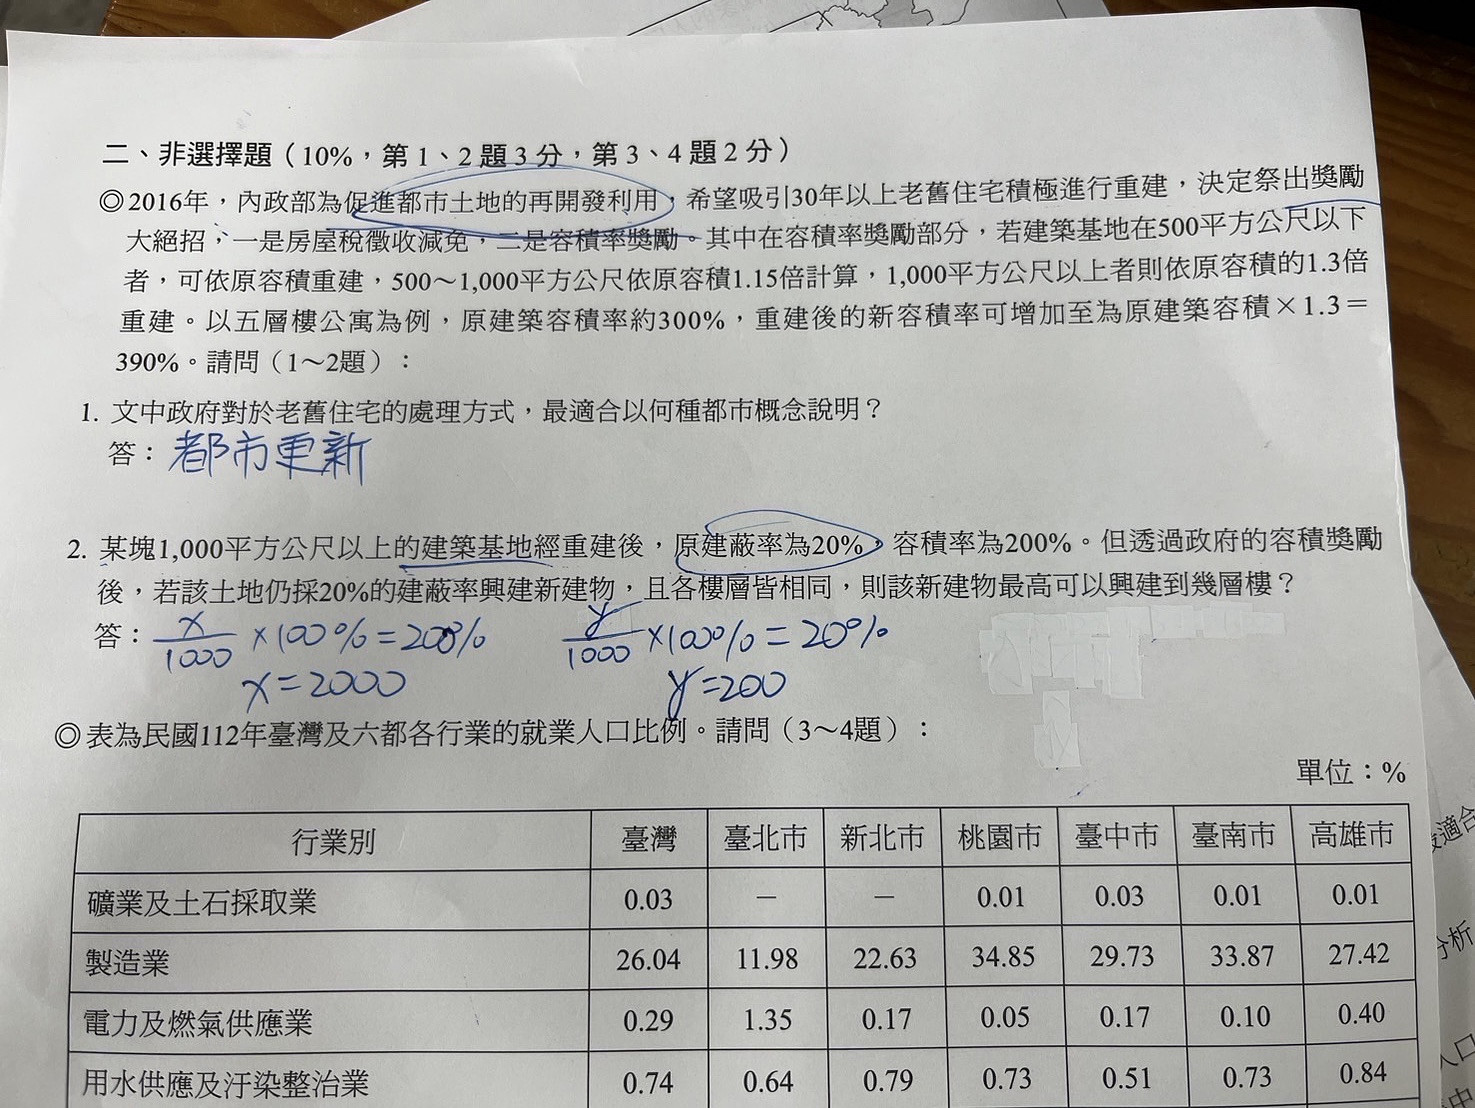 二、非選擇題（10%，第1、2題3分，第3、4題2分）
◎2016年，內政部為促進都市土地的再開發利用，希望吸引30年以上老舊住宅積極進行重建，決定祭出獎勵
大絕招，一是房屋稅徵收減免，二是容積率獎勵。其中在容積率獎勵部分，若建築基地在500平方公尺以下
者，可依原容積重建，500～1,000平方公尺依原容積1.15倍計算，1,000平方公尺以上者則依原容積的1.3倍
重建。以五層樓公寓為例，原建築容積率約300%，重建後的新容積率可增加至為原建築容積×1.3＝
390%。請問（1～2題）：
1. 文中政府對於老舊住宅的處理方式，最適合以何種都市概念說明？
答：都市更新
2. 某塊1,000平方公尺以上的建築基地經重建後，原建蔽率為20%，容積率為200%。但透過政府的容積獎勵
後，若該土地仍採20%的建蔽率興建新建物，且各樓層皆相同，則該新建物最高可以興建到幾層樓？
答：x/1000 ×100%=200% y/1000 ×100%=20%
x=2000 y=200
◎表為民國112年臺灣及六都各行業的就業人口比例。請問（3～4題）：
單位：%
行業別 臺灣 臺北市 新北市 桃園市 臺中市 臺南市 高雄市
礦業及土石採取業 0.03 － － 0.01 0.03 0.01 0.01
製造業 26.04 11.98 22.63 34.85 29.73 33.87 27.42
電力及燃氣供應業 0.29 1.35 0.17 0.05 0.17 0.10 0.40
用水供應及汙染整治業 0.74 0.64 0.79 0.73 0.51 0.73 0.84
適合
分析
人口
中